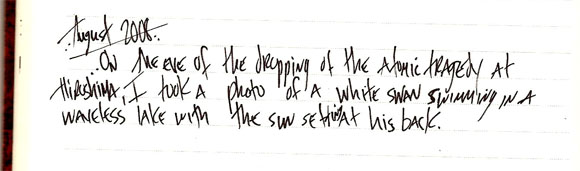 August 2006.
..On the eve of the dropping of the Atomic tragedy at
Hiroshima, I took a photo of a white swan swimming in a
waveless lake with the sun setting at his back.